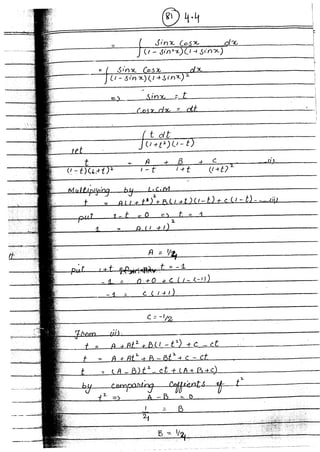 81 4.4
= ∫ Sinx Cosx dx / (1 - Sin²x)(1 + Sinx)
= ∫ Sinx Cosx dx / (1 - Sinx)(1 + Sinx)²
=> Sinx = t
Cosx dx = dt
∫ t dt / (1+t²)(1-t)
let
t / (1-t)(1+t)² = A / 1-t + B / 1+t + C / (1+t)² i)
Multiplying by L.C.M
t = A(1+t²) + B(1+t)(1-t) + c(1-t) - ii)
put 1-t = 0 => t = 1
1 = A(1+1)²
A = 1/4
put 1+t t = -1
-1 = 0+0+c(1-(-1))
-1 = c(1+1)
C = -1/2
From ii)
t = A + At² + B(1-t²) + c - ct
t = A + At² + B - Bt² + c - ct
t = (A-B)t² - ct + (A+B+c)
by comparing Cofficients of t²
t² => A - B = 0
= B
B = 1/4